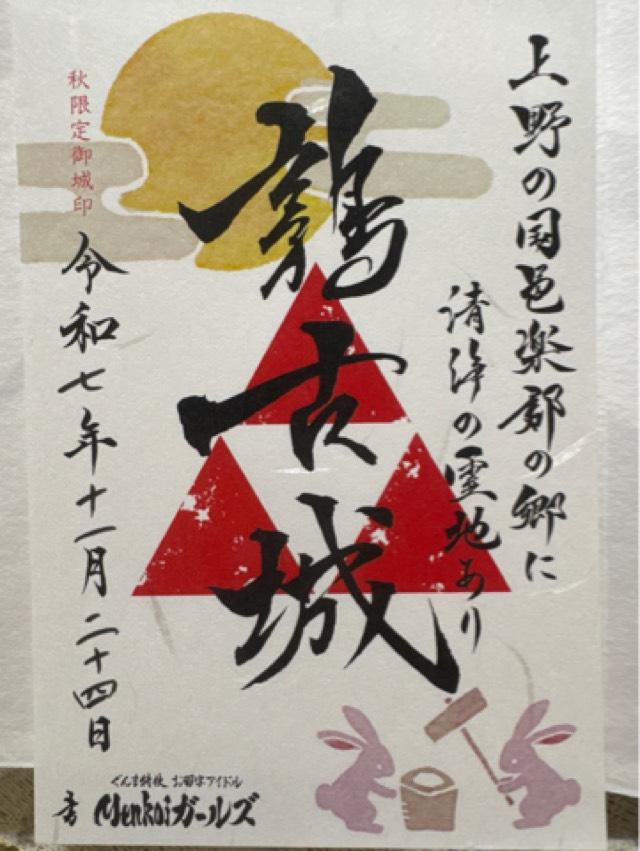 上野の国邑楽郡の郷に
清浄の霊地あり
鶉古城
秋限定御城印
令和七年十一月二十四日
ぐんま特使 お習字アイドル
書 Menkoiガールズ